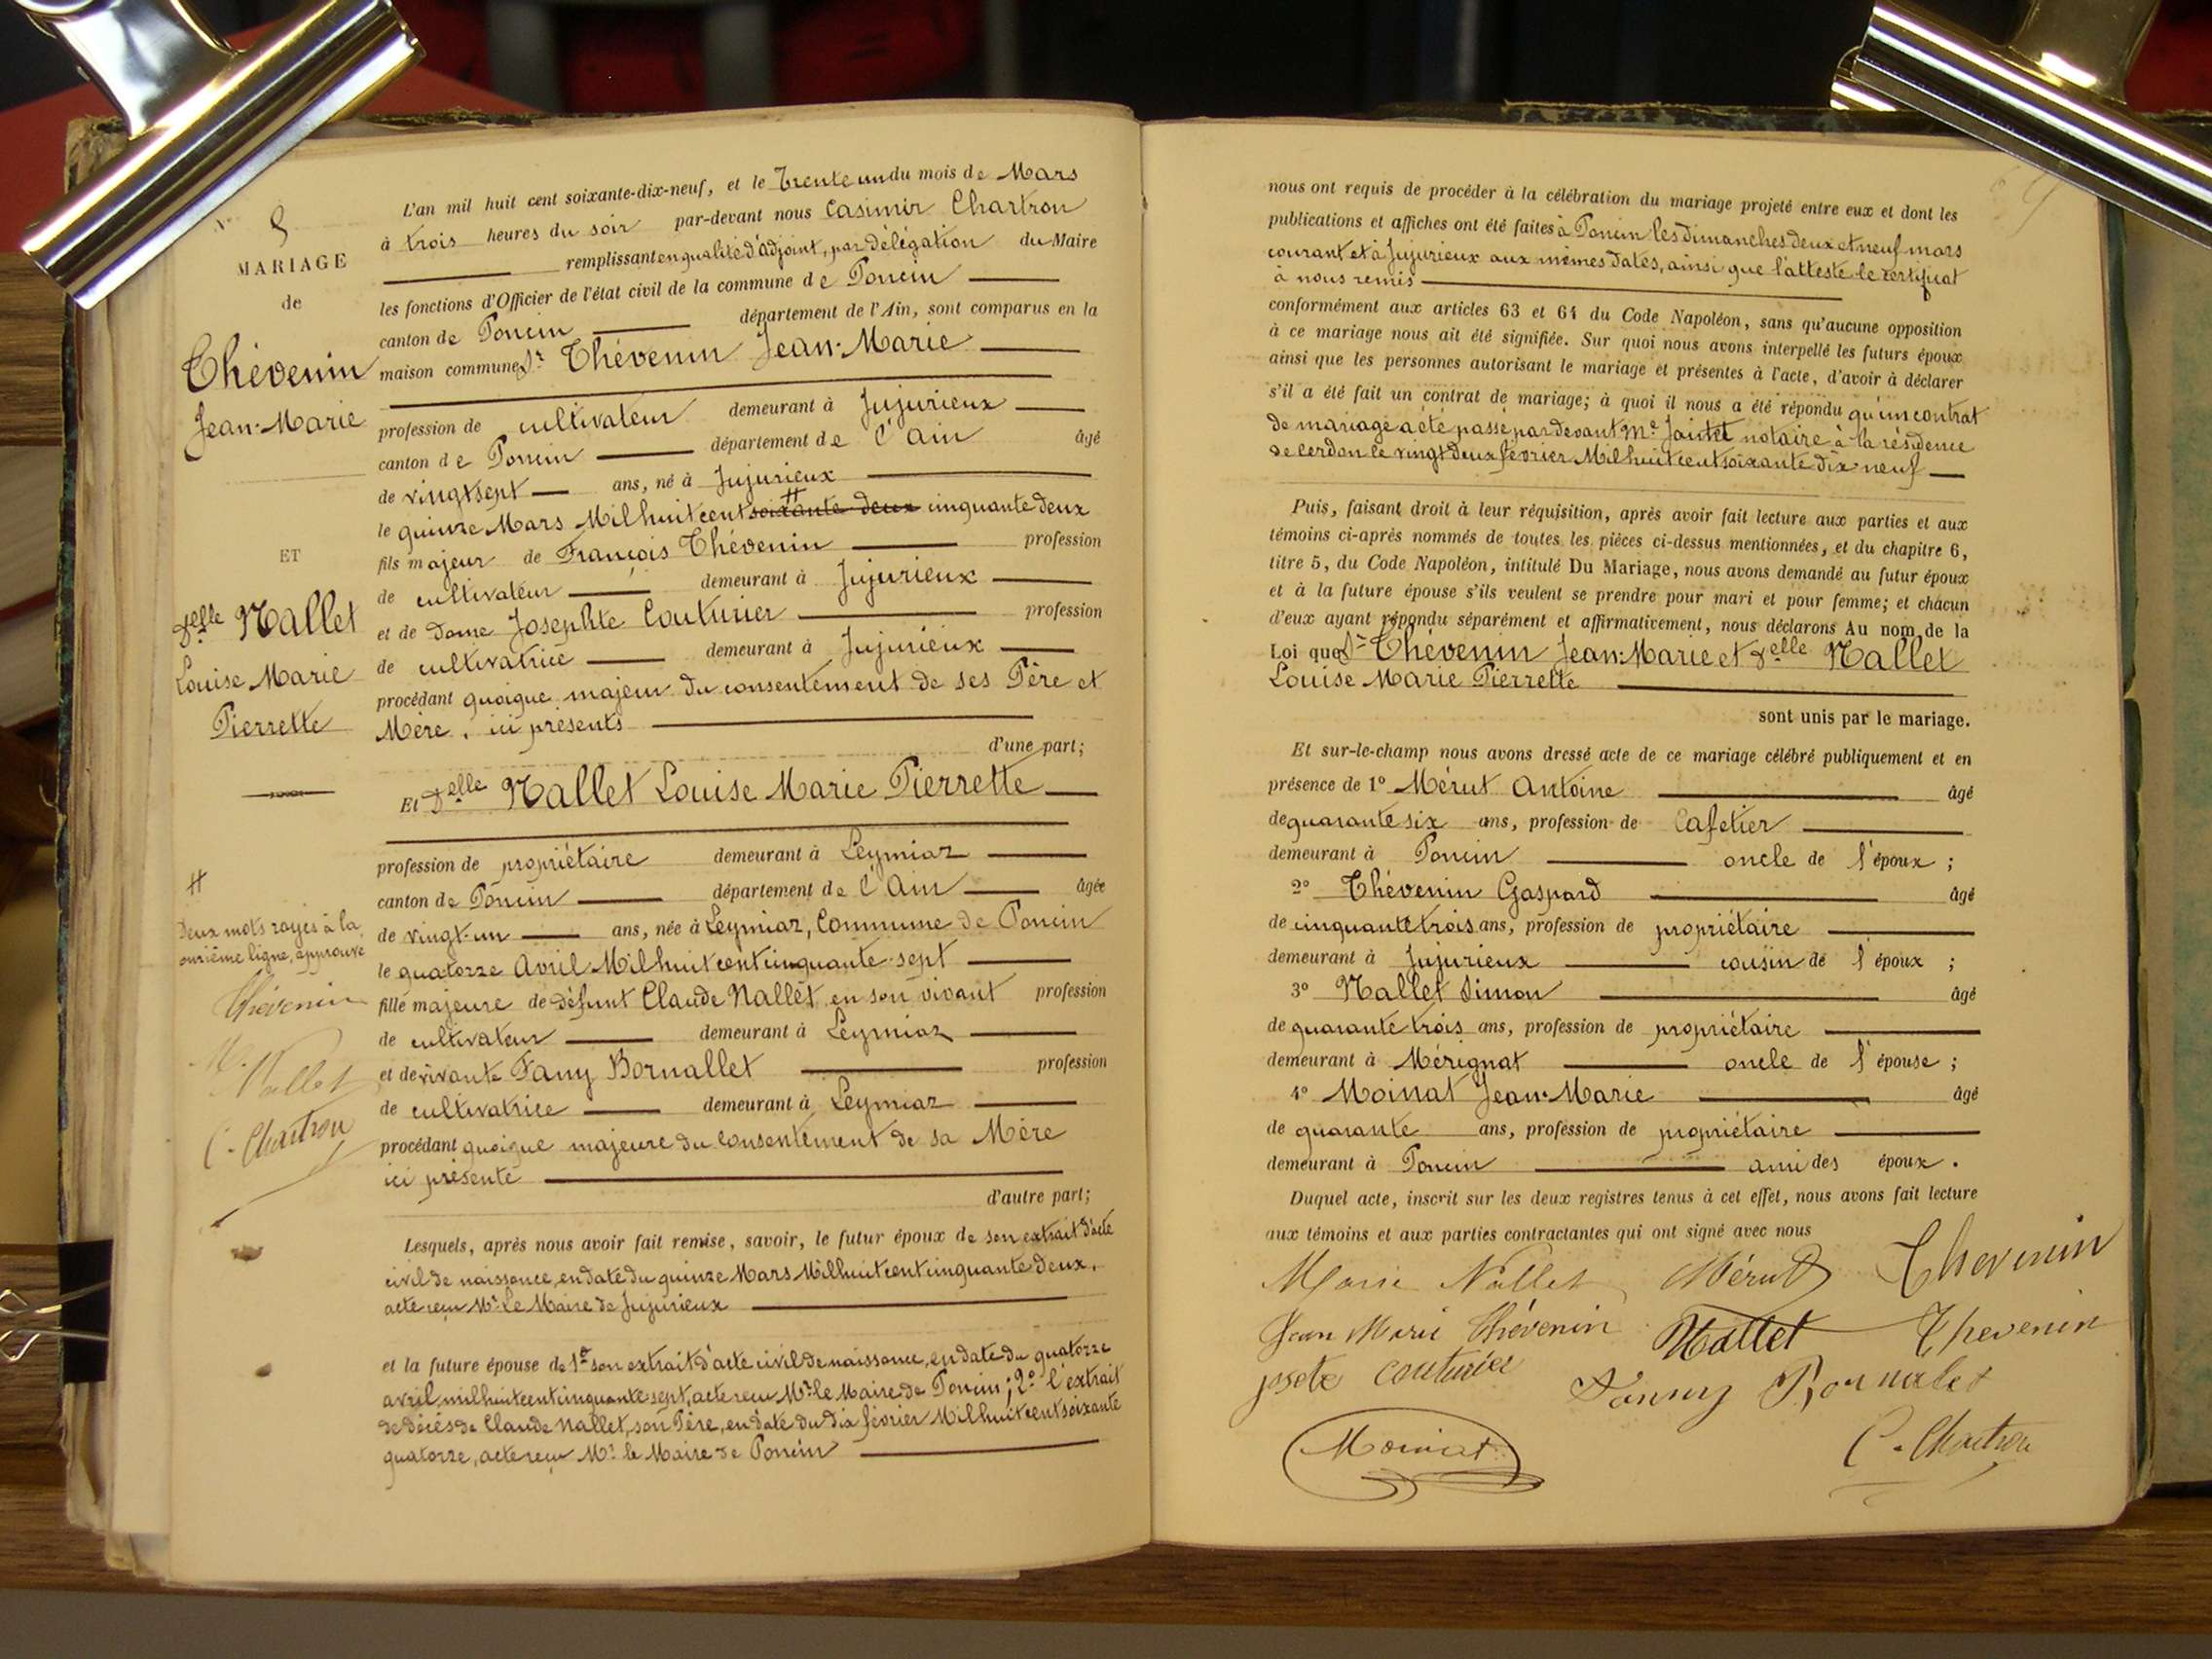 N° 5
MARIAGE
de
Thévenin
Jean-Marie
ET
Delle Nallet
Louise Marie
Pierrette
#
Deux mots rayés à la
onzième ligne, approuvé
Thévenin
M. Nallet
C. Chartron
L'an mil huit cent soixante-dix-neuf, et le Trente un du mois de Mars
à trois heures du soir par-devant nous Casimir Chartron
remplissant en qualité d'adjoint, par délégation du Maire
les fonctions d'Officier de l'état civil de la commune de Poncin
canton de Poncin département de l'Ain, sont comparus en la
maison commune, Sr Thévenin Jean-Marie
profession de cultivateur demeurant à Jujurieux
canton de Poncin département de l'Ain âgé
de vingt sept ans, né à Jujurieux
le quinze Mars Mil huit cent soixante deux # cinquante deux
fils majeur de François Thévenin profession
de cultivateur demeurant à Jujurieux
et de dame Josephte Couturier profession
de cultivatrice demeurant à Jujurieux
procédant quoique majeur du consentement de ses Père et
Mère, ici présents
d'une part;
Et Delle Nallet Louise Marie Pierrette
profession de propriétaire demeurant à Leymiaz
canton de Poncin département de l'Ain âgée
de vingt-un ans, née à Leymiaz, Commune de Poncin
le quatorze Avril Mil huit cent cinquante-sept
fille majeure de défunt Claude Nallet en son vivant profession
de cultivateur demeurant à Leymiaz
et de vivante Fany Bornallet profession
de cultivatrice demeurant à Leymiaz
procédant quoique majeure du consentement de sa Mère
ici présente
d'autre part;
Lesquels, après nous avoir fait remise, savoir, le futur époux de son extrait d'acte
civil de naissance, en date du quinze Mars Mil huit cent cinquante deux,
acte reçu Mr Le Maire de Jujurieux
et la future épouse de 1° son extrait d'acte civil de naissance, en date du quatorze
avril mil huit cent cinquante sept, acte reçu Mr le Maire de Poncin; 2° l'extrait
de décès de Claude Nallet, son Père, en date du dix février Mil huit cent soixante
quatorze, acte reçu Mr le Maire de Poncin
nous ont requis de procéder à la célébration du mariage projeté entre eux et dont les
publications et affiches ont été faites à Poncin les Dimanches deux et neuf mars
courant et à Jujurieux aux mêmes dates, ainsi que l'atteste le certificat
à nous remis
conformément aux articles 63 et 64 du Code Napoléon, sans qu'aucune opposition
à ce mariage nous ait été signifiée. Sur quoi nous avons interpellé les futurs époux
ainsi que les personnes autorisant le mariage et présentes à l'acte, d'avoir à déclarer
s'il a été fait un contrat de mariage; à quoi il nous a été répondu qu'un contrat
de mariage a été passé par devant Me notaire à la résidence
de Cerdon le vingt deux février Mil huit cent soixante dix neuf
Puis, faisant droit à leur réquisition, après avoir fait lecture aux parties et aux
témoins ci-après nommés de toutes les pièces ci-dessus mentionnées, et du chapitre 6,
titre 5, du Code Napoléon, intitulé Du Mariage, nous avons demandé au futur époux
et à la future épouse s'ils veulent se prendre pour mari et pour femme; et chacun
d'eux ayant répondu séparément et affirmativement, nous déclarons Au nom de la
Loi que Sr Thévenin Jean-Marie et Delle Nallet
Louise Marie Pierrette
sont unis par le mariage.
Et sur-le-champ nous avons dressé acte de ce mariage célébré publiquement et en
présence de 1° Mérut Antoine âgé
de quarante six ans, profession de Cafetier
demeurant à Poncin oncle de l'époux;
2° Thévenin Gaspard âgé
de cinquante trois ans, profession de propriétaire
demeurant à Jujurieux cousin de l'époux;
3° Nallet Simon âgé
de quarante trois ans, profession de propriétaire
demeurant à Mérignat oncle de l'épouse;
4° Moinat Jean-Marie âgé
de quarante ans, profession de propriétaire
demeurant à Poncin ami des époux.
Duquel acte, inscrit sur les deux registres tenus à cet effet, nous avons fait lecture
aux témoins et aux parties contractantes qui ont signé avec nous
Marie Nallet Mérut Thevenin
Jean Marie Thévenin Nallet Thevenin
josete couturier Fanny Bornalet
Moinat C. Chartron